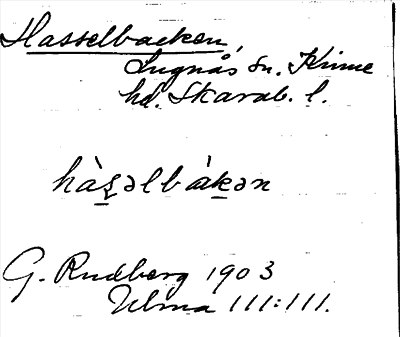 Hasselbacken,
Lugnås sn. Kinne
hd. Skarab. l.
hàs̠əlbák̠ən
G. Rudberg 1903
Ulma 111:111.